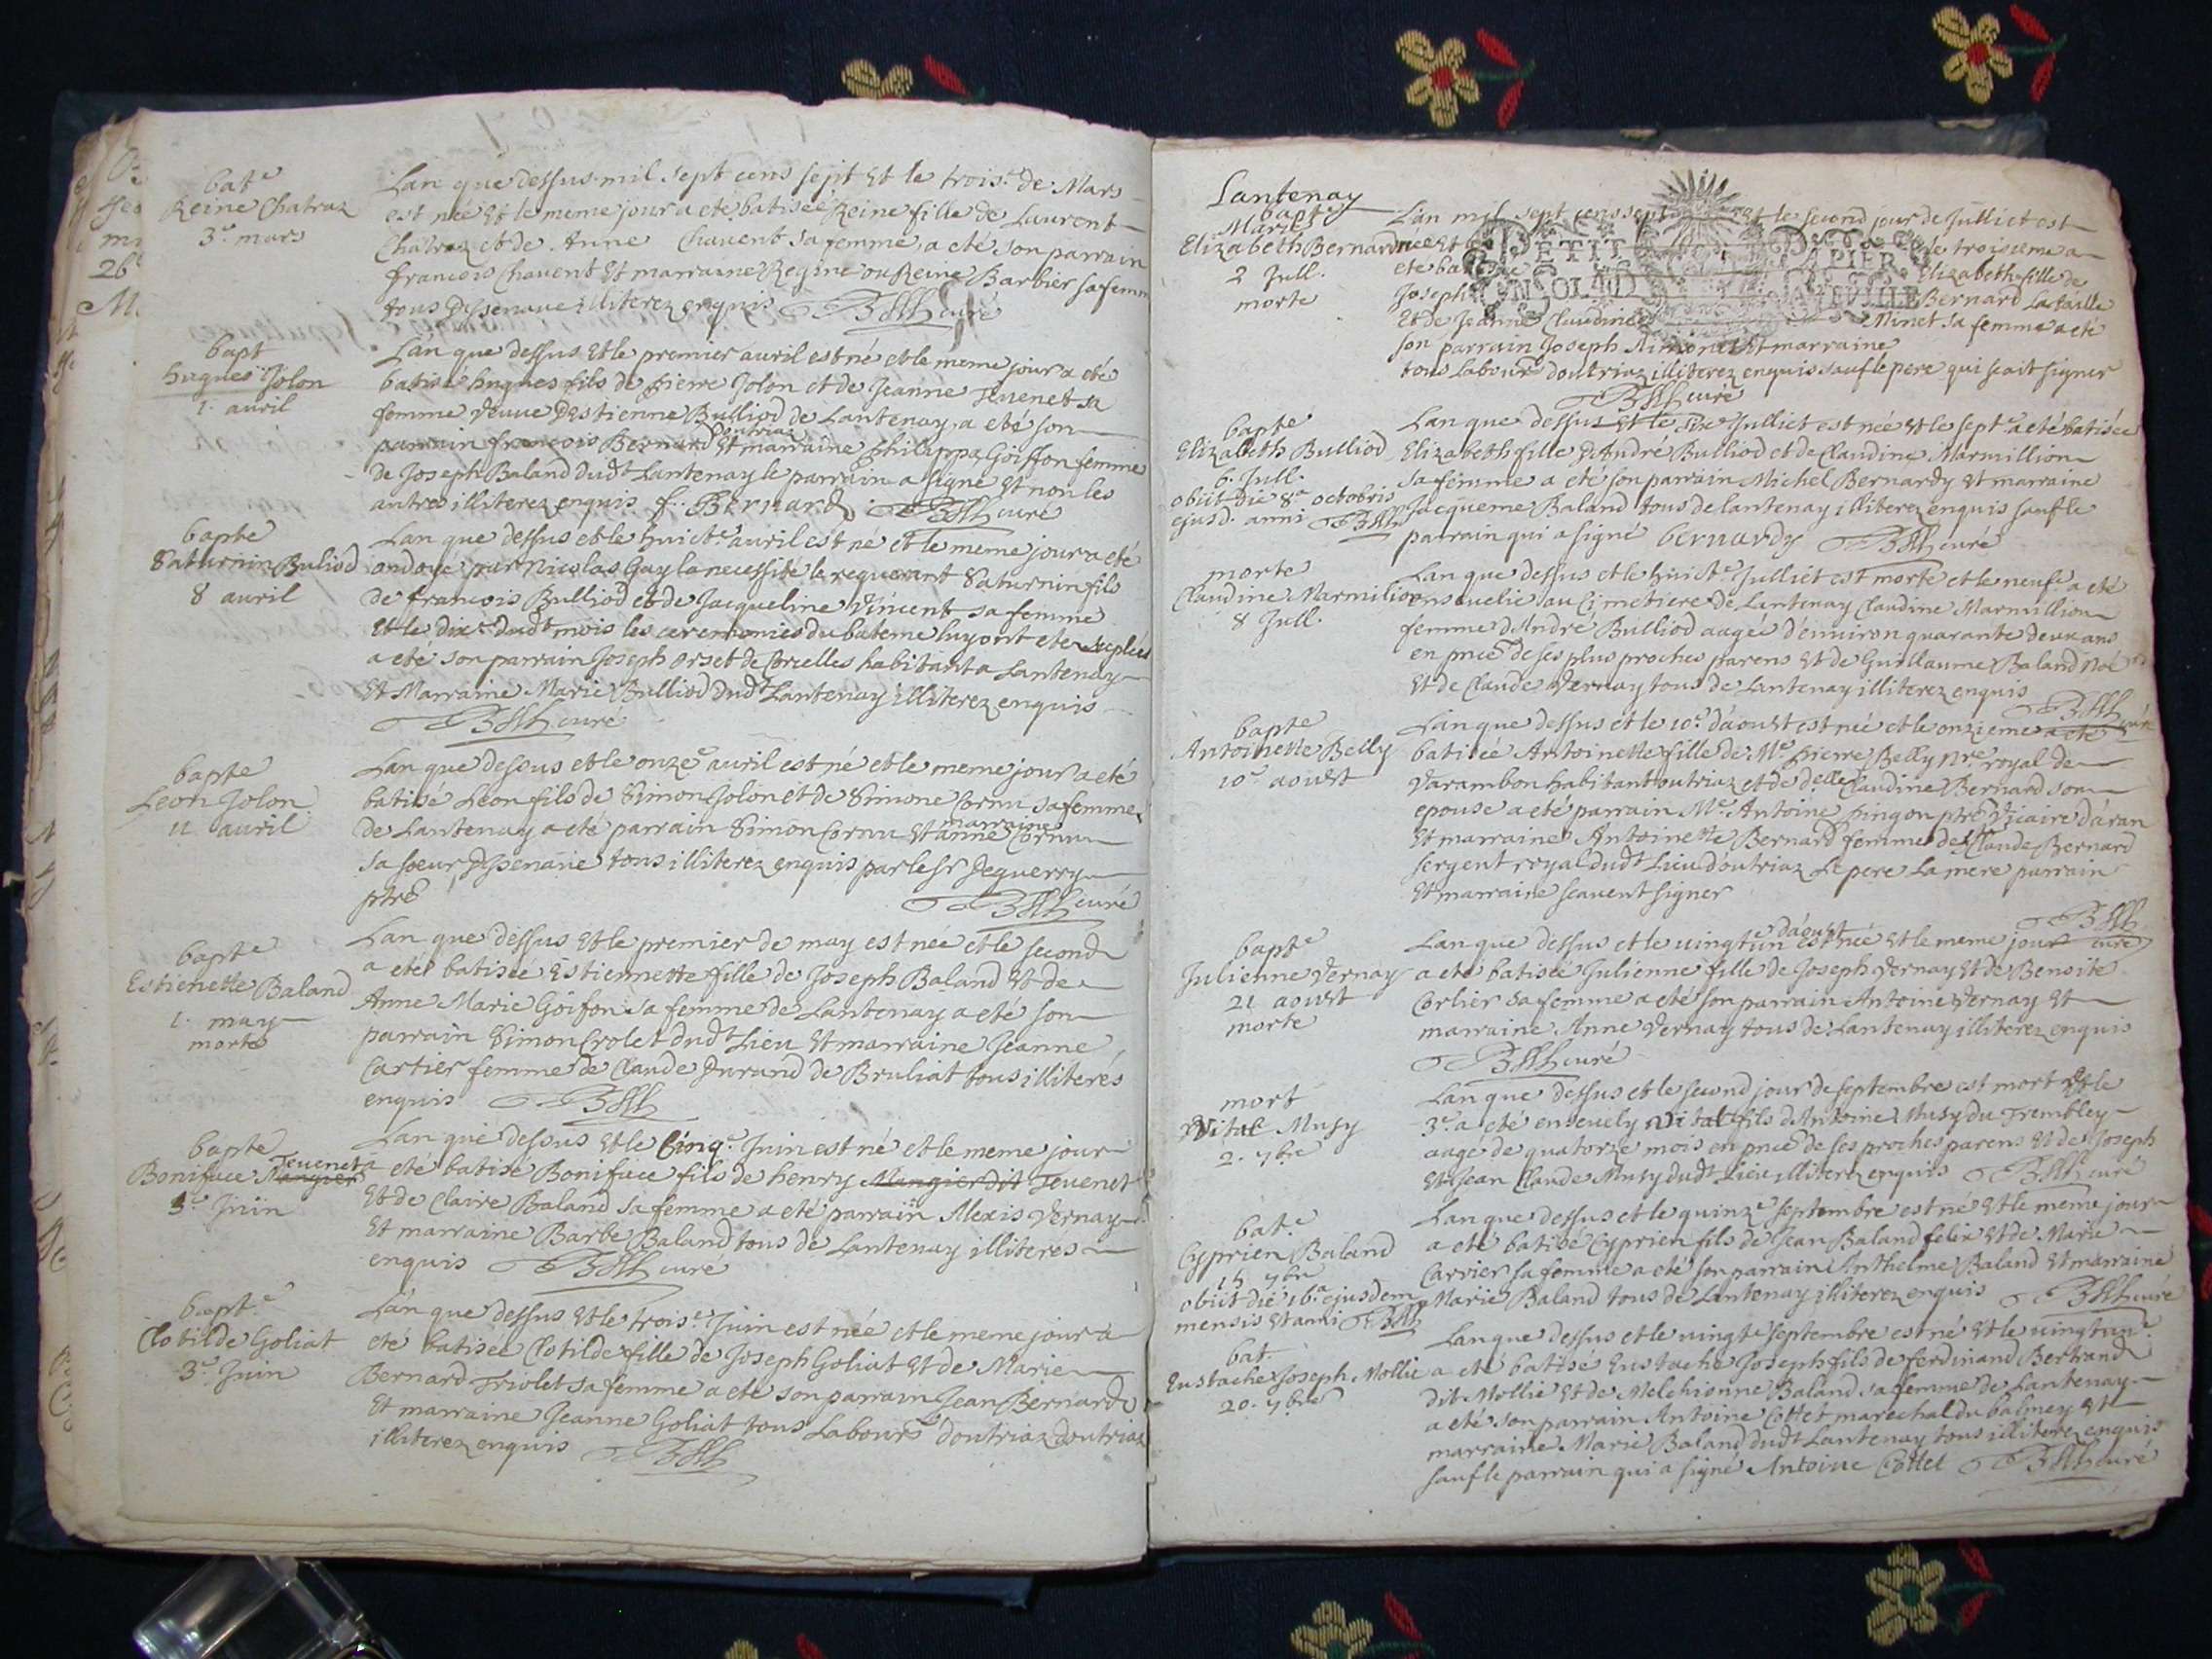 bat.e
Reine Chatraz
3.e mars
Lan que dessus mil sept cens sept Et le trois.e de Mars
est née Et le meme jour a eté batiseé Reine fille de Laurent
Chatraz et de Anne Chavent sa femme a eté son parrain
francois Chavent Et marraine Regine ou Reine Barbier sa femm
tous illiterez enquis curé
bapt
hugues Jolon
1. avril
Lan que dessus Et le premier avril est né et le meme jour a eté
batisé hugues fils de pierre Jolon et de Jeanne Tevenet sa
femme veuve Destienne Bulliod de Lantenay a eté son
parrain francois Bernard doutriaz Et marraine philippa Goiffon femme
de Joseph Baland dudt Lantenay le parrain a signé Et non les
autres illiterez enquis f. Bernard curé
bapte
Saturnin Buliod
8 avril
Lan que dessus et le huict.e avril est né et le meme jour a eté
andoyé par Nicolas Guy la necessité le requerant Saturnin fils
de francois Bulliod et de Jacqueline Vincent sa femme
Et le dix.e dudt mois les ceremonies du bateme luy ont eté supleés
a eté son parrain Joseph orset de Corcelles habitant a Lantenay
Et Marraine Marie Bulliod dudt Lantenay illiterez enquis
curé
bapte
Leon Jolon
11 avril
Lan que dessus et le onze.e avril est né et le meme jour a eté
batisé Leon fils de Simon Jolon et de Simone Cornu sa femme
de Lantenay a eté parrain Simon Cornu Et marraine anne Cornu
sa soeur tous illiterez enquis par le Sr Deguerry
ptre curé
bapt.e
Estienette Baland
1. may
morte
Lan que dessus Et le premier de may est née et le second
a eté batiseé Estiennette fille de Joseph Baland Et de
Anne Marie Goifon sa femme de Lantenay a eté son
parrain Simon Crolet dudt Lieu Et marraine Jeanne
Cartier femme de Claude Durand de Bruliat tous illiterés
enquis
bapte
Boniface Tevenet Mangier
5.e Juin
Lan que dessus Et le Cinq.e Juin est né et le meme jour
a eté batisé Boniface fils de henry Mangier dit Tevenet
Et de Claire Baland sa femme a eté parrain Alexis Vernay
Et marraine Barbe Baland tous de Lantenay illiteres
enquis curé
bapt.e
Clotilde Goliat
3.e Juin
Lan que dessus Et le trois.e Juin est née et le meme jour a
eté batiseé Clotilde fille de Joseph Goliat Et de Marie
Bernard Triolet sa femme a eté son parrain Jean Bernard
Et marraine Jeanne Goliat tous Labours doutriaz doutriaz
illiterez enquis
Lantenay
bapte
Marie
Elizabeth Bernard
2 Jull.
morte
PETIT PAPIER
Lan mil sept cens sept Et le second jour de Julliet est
née Et le troisieme a
eté batiseé Elizabeth fille de
Joseph Bernard Lataille
Et de Jeanne Claudine Minet sa femme a eté
son parrain Joseph Et marraine
tous Labours doutriaz illiterez enquis sauf le pere qui scait signer
curé
bapte
Elizabeth Bulliod
6. Jull.
obiit die 8a octobris
ejusd. anni
Lan que dessus Et le Julliet est née Et le sept.e a eté batiseé
Elizabeth fille D'André Bulliod et de Claudine Marmillion
sa femme a eté son parrain Michel Bernardy Et marraine
Jacqueme Baland tous de lantenay illiterez enquis sauf le
parrain qui a signé bernardy curé
morte
Claudine Marmilion
8 Jull.
Lan que dessus et le huict.e Julliet est morte et le neuf.e a eté
ensevelie au Cimetiere de Lantenay Claudine Marmillion
femme d'André Bulliod aageé d'environ quarante deux ans
en pnce de ses plus proches parens Et de Guillaume Baland
Et de Claude Vernay tous de Lantenay illiterez enquis
curé
bapte
Antoinette Belly
10.e aoust
Lan que dessus et le 10.e d'aoust est née et le onzieme a eté
batiseé Antoinette fille de Me pierre Belly nre royal de
Varambon habitant outriaz et de delle Claudine Bernard son
epouse a eté parrain Mre Antoine pingon ptre Vicaire d'aran
Et marraine Antoinette Bernard femme de Claude Bernard
sergent royal dudt Lieu d'outriaz Le pere La mere parrain
Et marraine scavent signer
curé
bapt.e
Julienne Vernay
21 aoust
morte
Lan que dessus et le vingt un d'aoust est née Et le meme jour
a eté batiseé Julienne fille de Joseph Vernay Et de Benoite
Corlier sa femme a eté son parrain Antoine Vernay Et
marraine Anne Vernay tous de Lantenay illiterez enquis
curé
mort
Vital Musy
2. 7bre
Lan que dessus et le second jour de septembre est mort Et le
3.e a eté ensevely Vital fils d'Antoine Musy du Trembley
aagé de quatorze mois en pnce de ses proches parens Et de Joseph
Et Jean Claude Musy dudt Lieu illiterez enquis curé
bat.e
Cyprien Baland
15 7bre
obiit die 16.a ejusdem
mensis et anni
Lan que dessus et le quinz.e septembre est né Et le meme jour
a eté batisé Cyprien fils de Jean Baland felix Et de Marie
Carrier sa femme a eté son parrain Anthelme Baland Et marraine
Marie Baland tous de Lantenay illiterez enquis curé
bat.
Eustache Joseph Mollie
20. 7bre
Lan que dessus et le vingt.e septembre est né Et le vingt un.e
a eté batisé Eustache Joseph fils de ferdinand Bertrand
dit Mollie Et de Melchionne Baland sa femme de Lantenay
a eté son parrain Antoine Cottet marechal du balmey Et
marraine Marie Baland dudt Lantenay tous illiterez enquis
sauf le parrain qui a signé Antoine Cottet curé